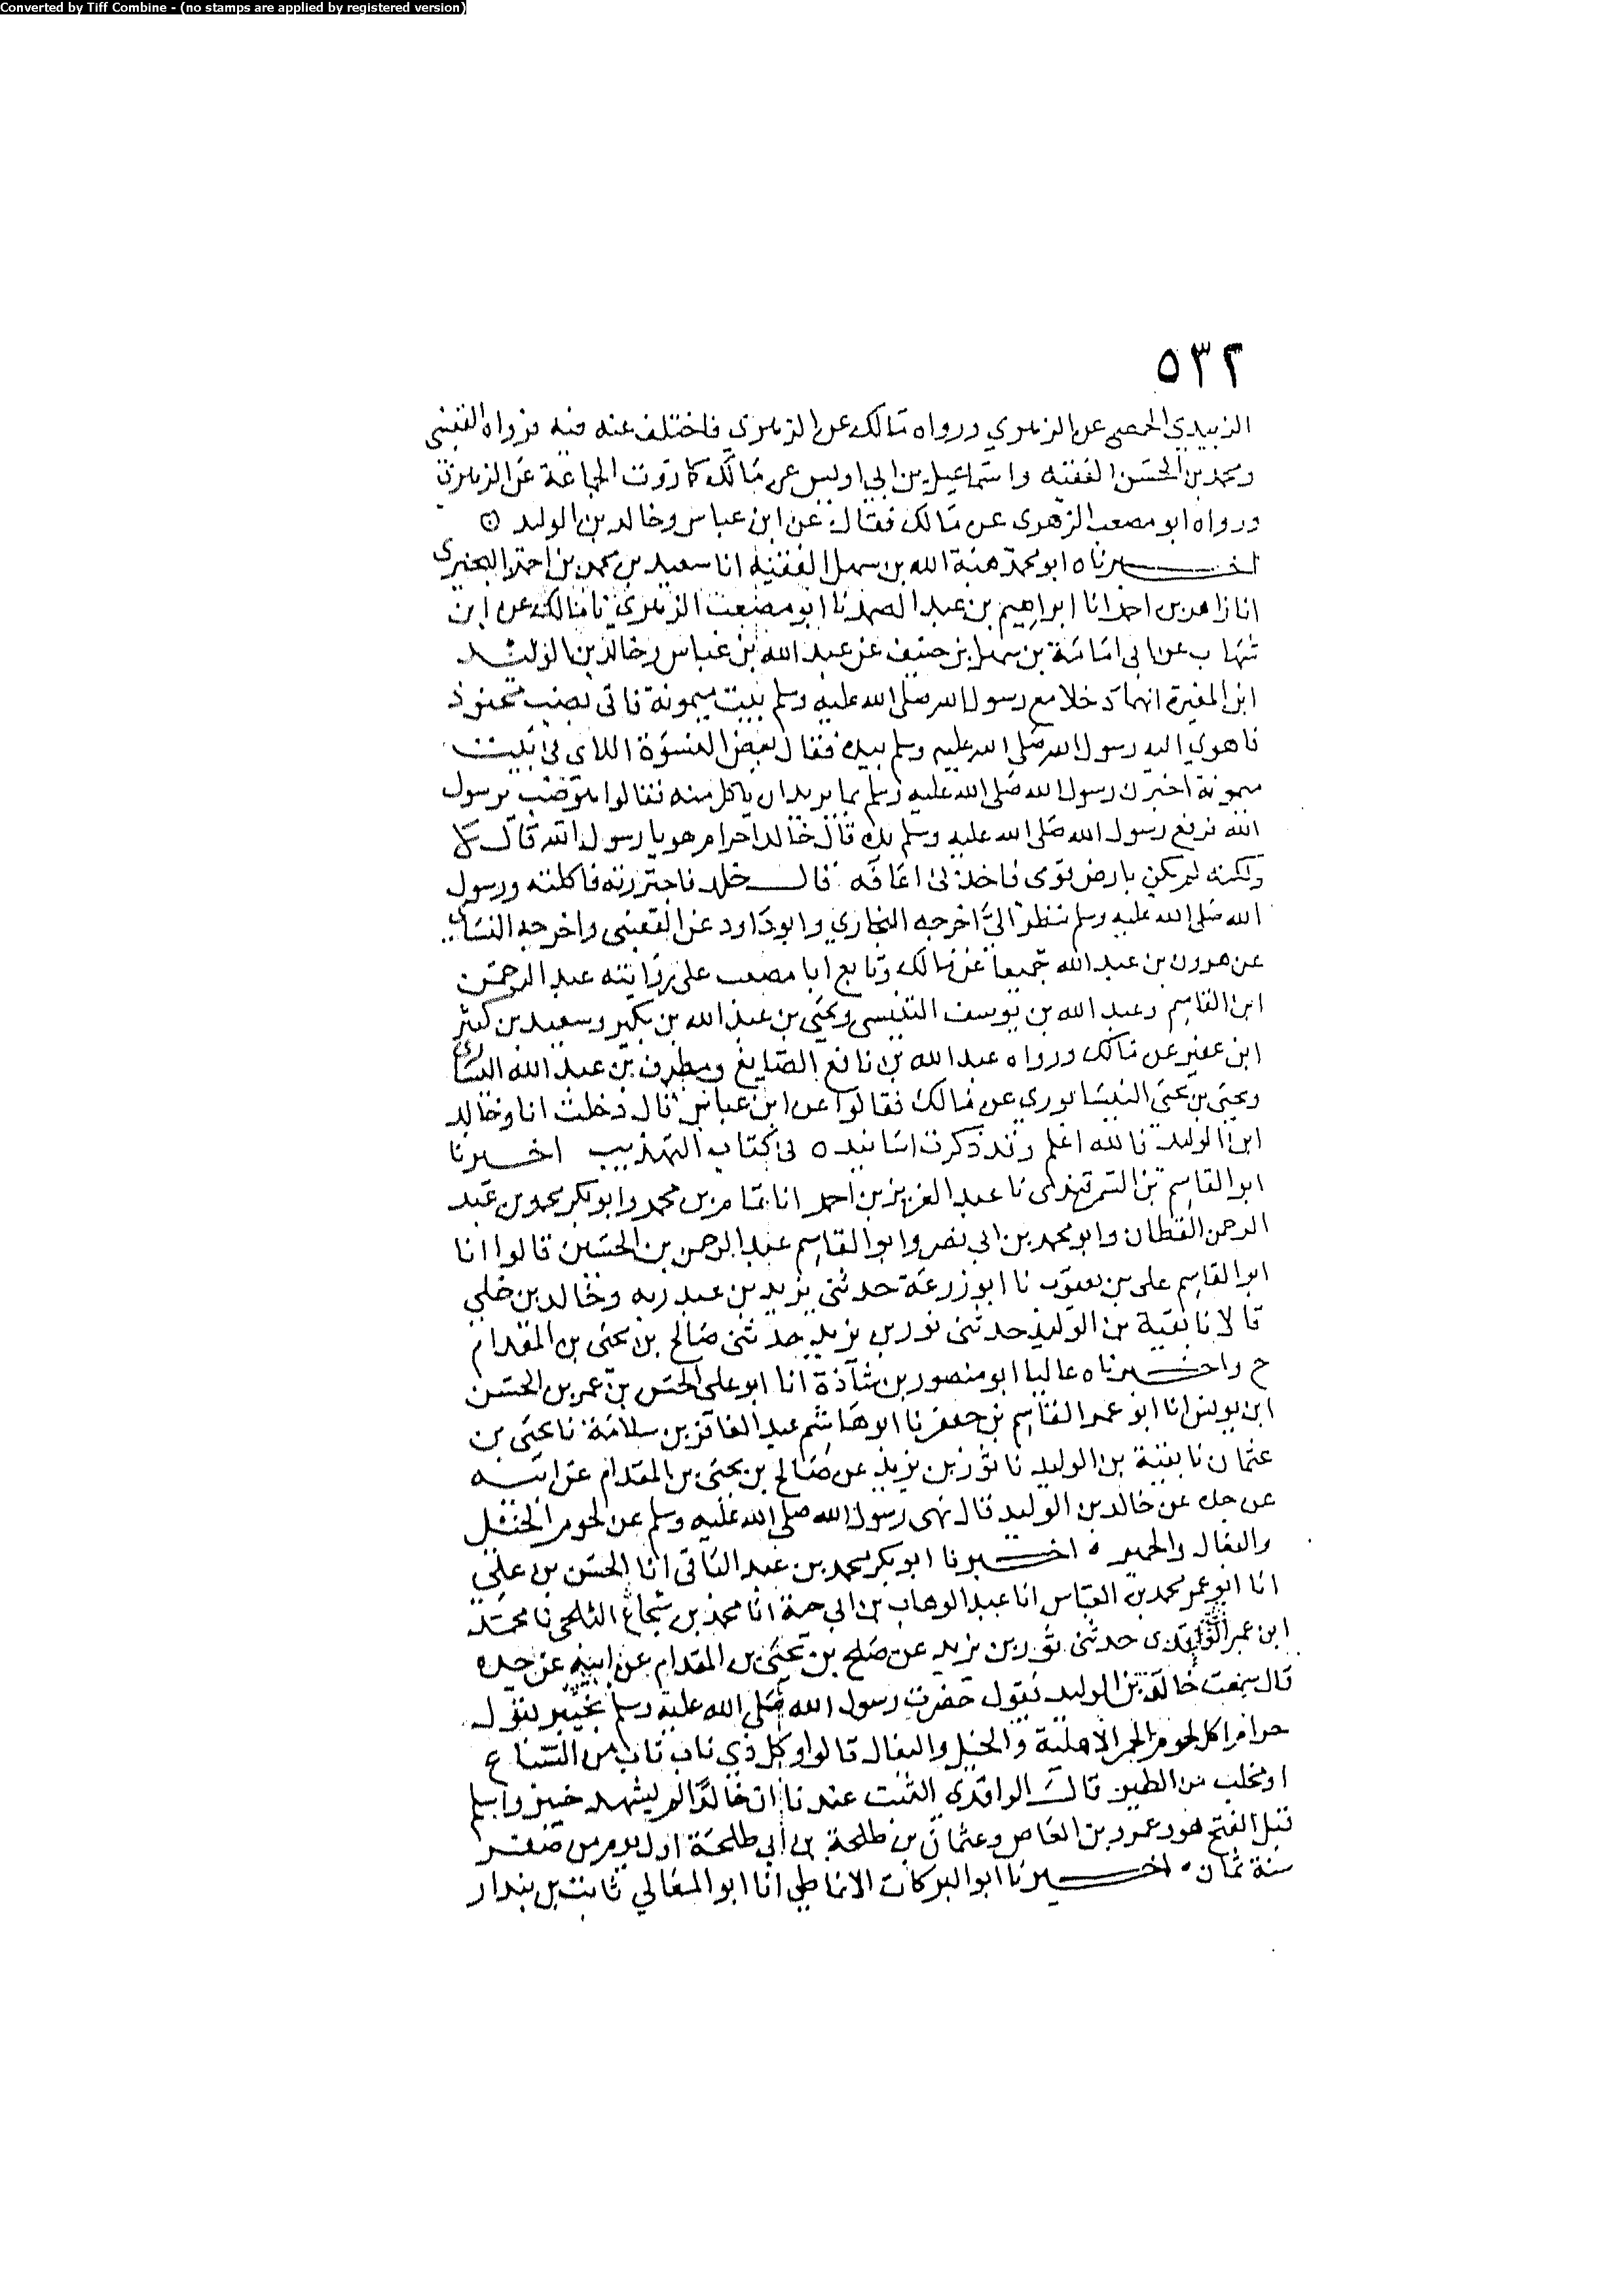 Converted by Tiff Combine - (no stamps are applied by registered version)
٥٣٢
الزبيدي الحمصي عن الزهري ورواه مالك عن الزهري فاختلف عنه فيه فرواه القعنبي
ومحمد بن الحسن الفقيه واسماعيل بن ابي اويس عن مالك كما روت الجماعة عن الزهري
ورواه ابو مصعب الزهري عن مالك فقال عن ابن عباس وخالد بن الوليد
اخبرناه ابو محمد هبة الله بن سهل الفقيه انا سعيد بن محمد بن احمد البحيري
انا زاهر بن احمد انا ابراهيم بن عبد الصمد نا ابو مصعب الزهري نا مالك عن ابن
شهاب عن ابي امامة بن سهل بن حنيف عن عبد الله بن عباس وخالد بن الوليد
ابن المغيرة انهما دخلا مع رسول الله صلى الله عليه وسلم بيت ميمونة فاتى بضب محنوذ
فاهوى اليه رسول الله صلى الله عليه وسلم بيده فقال بعض النسوة اللاي في بيت
ميمونة اخبرن رسول الله صلى الله عليه وسلم بما يريد ان ياكل منه فقالوا هو ضب يرسول
الله فرفع رسول الله صلى الله عليه وسلم يده قال خالد احرام هو يا رسول الله قال لا
ولكنه لم يكن بارض قومي فاجدني اعافه قال خلد فاجتررته فاكلته ورسول
الله صلى الله عليه وسلم ينظر الي اخرجه البخاري وابو داود عن القعنبي واخرجه النسائي
عن هرون بن عبد الله جميعا عن مالك وتابع ابا مصعب على روايته عبد الرحمن
ابن القاسم وعبد الله بن يوسف التنيسي ويحيى بن عبد الله بن بكير وسعيد بن كثير
ابن عفير عن مالك ورواه عبد الله بن نافع الصايغ ومطرف بن عبد الله اليساري
ويحيى بن يحيى النيسابوري عن مالك فقالوا عن ابن عباس قال دخلت انا وخالد
ابن الوليد فالله اعلم وقد ذكرت اسانيده في كتاب التهذيب اخبرنا
ابو القاسم بن السمرقندي نا عبد العزيز بن احمد انا تمام بن محمد وابو بكر محمد بن عبد
الرحمن القطان وابو محمد بن ابي نصر وابو القاسم عبد الرحمن بن الحسين قالوا انا
ابو القاسم علي بن يعقوب نا ابو زرعة حدثني يزيد بن عبد ربه وخالد بن خلي
قالا نا بقية بن الوليد حدثني ثور بن يزيد حدثني صالح بن يحيى بن المقدام
ح واخبرناه عاليا ابو منصور بن شاذة انا ابو علي الحسن بن عمر بن الحسن
ابن يونس انا ابو عمر القاسم بن جعفر نا ابو هاشم عبد الغافر بن سلامة نا يحيى بن
عثمان نا بقية بن الوليد نا ثور بن يزيد عن صالح بن يحيى بن المقدام عن ابيه
عن جده عن خالد بن الوليد قال نهى رسول الله صلى الله عليه وسلم عن لحوم الخيل
والبغال والحمير اخبرنا ابو بكر محمد بن عبد الباقي انا الحسن بن علي
انا ابو عمر محمد بن العباس انا عبد الوهاب بن ابي حية انا محمد بن شجاع الثلجي نا محمد
ابن عمر الواقدي حدثني ثور بن يزيد عن صلح بن يحيى بن المقدام عن ابيه عن جده
قال سمعت خالد بن الوليد يقول حضرت رسول الله صلى الله عليه وسلم بخيبر يقول
حرام اكل لحوم الحمر الاهلية والخيل والبغال قالوا وكل ذي ناب ناب من السباع
او مخلب من الطير قال الواقدي الثبت عندنا ان خالدا لم يشهد خيبر واسلم
قبل الفتح هو وعمرو بن العاص وعثمان بن طلحة بن ابي طلحة اول يوم من صفر
سنة ثمان اخبرنا ابو البركات الانماطي انا ابو المعالي ثابت بن بندار